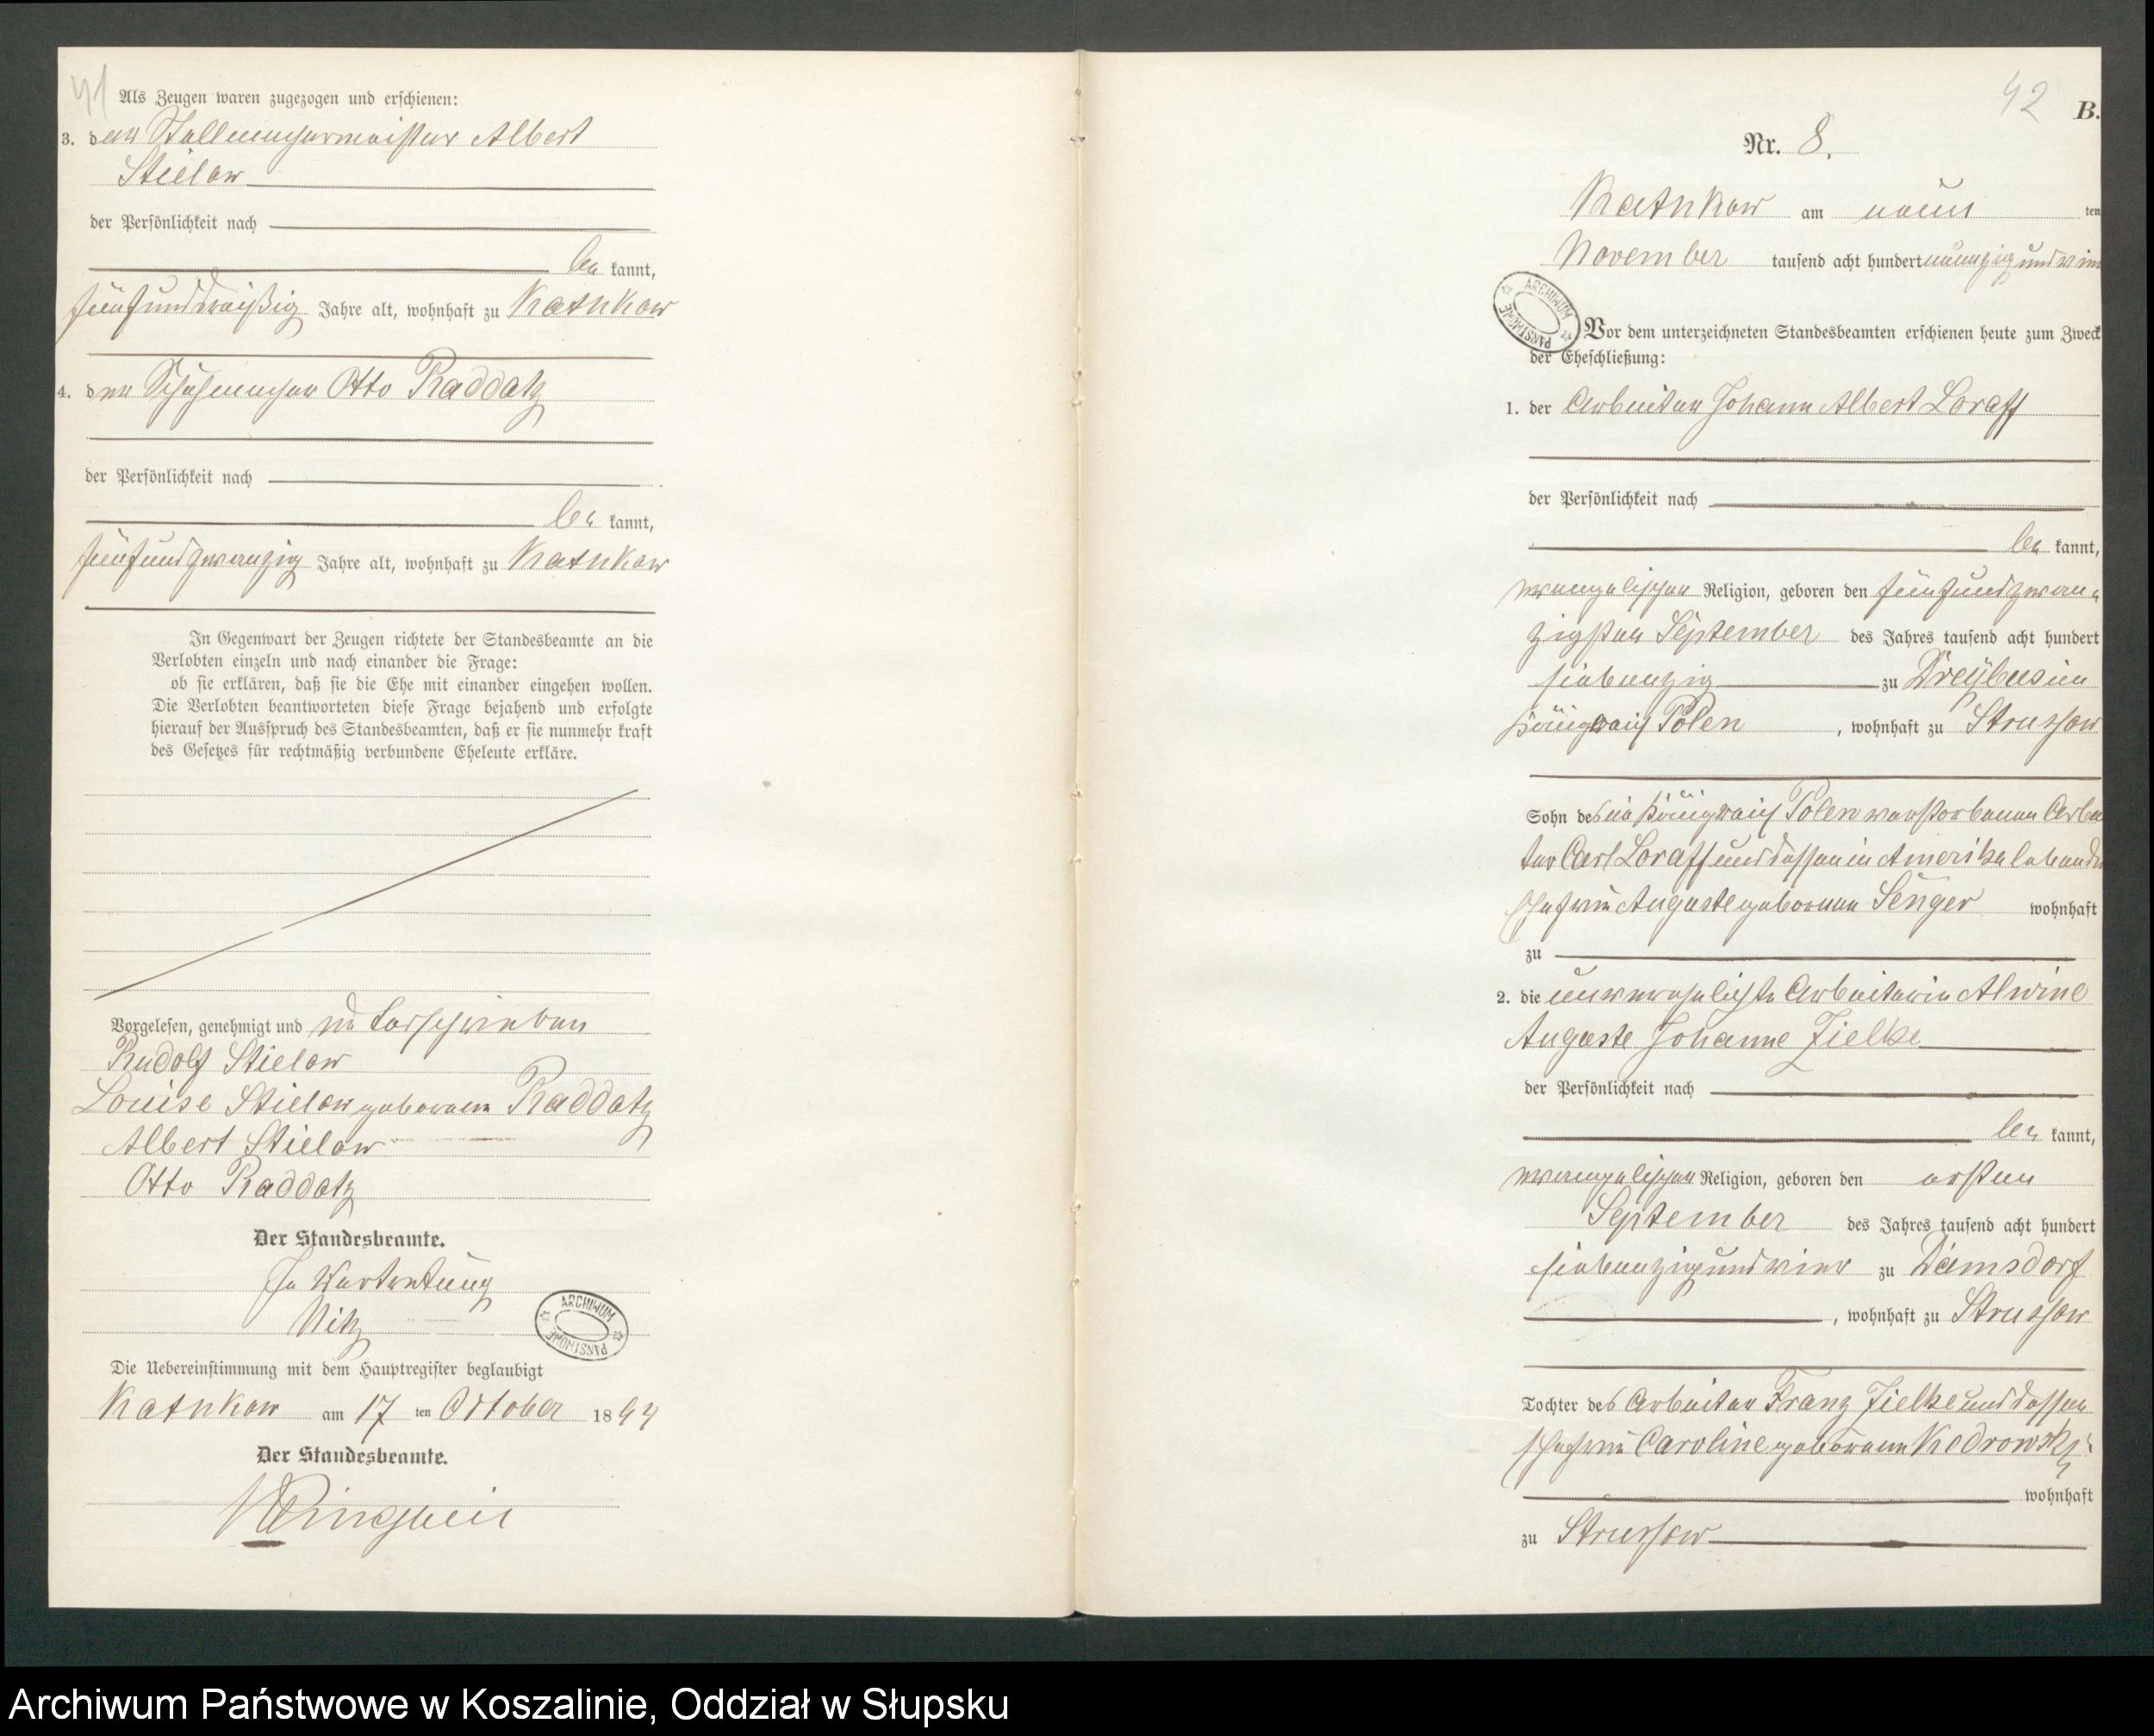 41
Als Zeugen waren zugezogen und erschienen:
3. der Stellmachermeister Albert
Stielow
der Persönlichkeit nach
be kannt,
fünfunddreißig Jahre alt, wohnhaft zu Katkow
4. der Schuhmacher Otto Raddatz
der Persönlichkeit nach
be kannt,
fünfundzwanzig Jahre alt, wohnhaft zu Katkow
In Gegenwart der Zeugen richtete der Standesbeamte an die
Verlobten einzeln und nach einander die Frage:
ob sie erklären, daß sie die Ehe mit einander eingehen wollen.
Die Verlobten beantworteten diese Frage bejahend und erfolgte
hierauf der Ausspruch des Standesbeamten, daß er sie nunmehr kraft
des Gesetzes für rechtmäßig verbundene Eheleute erkläre.
Vorgelesen, genehmigt und unterschrieben
Rudolf Stielow
Louise Stielow geborene Raddatz
Albert Stielow
Otto Raddatz
Der Standesbeamte.
In Vertretung
Nitz
ARCHIWUM PAŃSTWOWE
Die Uebereinstimmung mit dem Hauptregister beglaubigt
Katkow am 17 ten October 1894
Der Standesbeamte.
42
B.
Nr. 8.
Katkow am neun ten
November tausend acht hundert neunzig und vier
ARCHIWUM PAŃSTWOWE
Vor dem unterzeichneten Standesbeamten erschienen heute zum Zweck
der Eheschließung:
1. der Arbeiter Johann Albert Loraff
der Persönlichkeit nach
be kannt,
evangelischer Religion, geboren den fünfundzwan-
zigsten September des Jahres tausend acht hundert
siebenzig zu
Königreich Polen, wohnhaft zu Strussow
Sohn des im Königreich Polen verstorbenen Arbei
ter Carl Loraff und dessen in Amerika lebende
Ehefrau Auguste geborene Senger wohnhaft
zu
2. die unverehelichte Arbeiterin Alwine
Auguste Johanne Zielke
der Persönlichkeit nach
be kannt,
evangelischer Religion, geboren den ersten
September des Jahres tausend acht hundert
siebenzig und vier zu Damsdorf
, wohnhaft zu Strussow
Tochter des Arbeiter Franz Zielke und dessen
Ehefrau Caroline geborene Kedrowski
wohnhaft
zu Strussow
Archiwum Państwowe w Koszalinie, Oddział w Słupsku